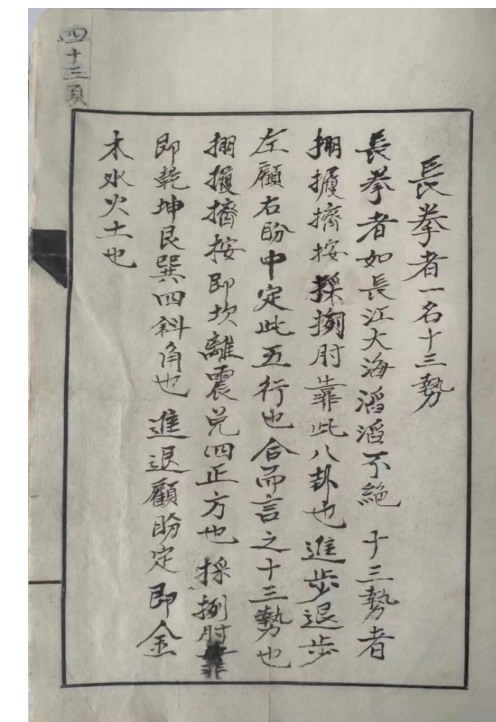 四十三頁
長拳者一名十三勢
長拳者如長江大海滔滔不絶 十三勢者
掤攦擠按採挒肘靠此八卦也進步退步
左顧右盼中定此五行也合而言之十三勢也
掤攦擠按即坎離震兌四正方也 採挒肘靠
即乾坤艮巽四斜角也 進退顧盼定即金
木水火土也